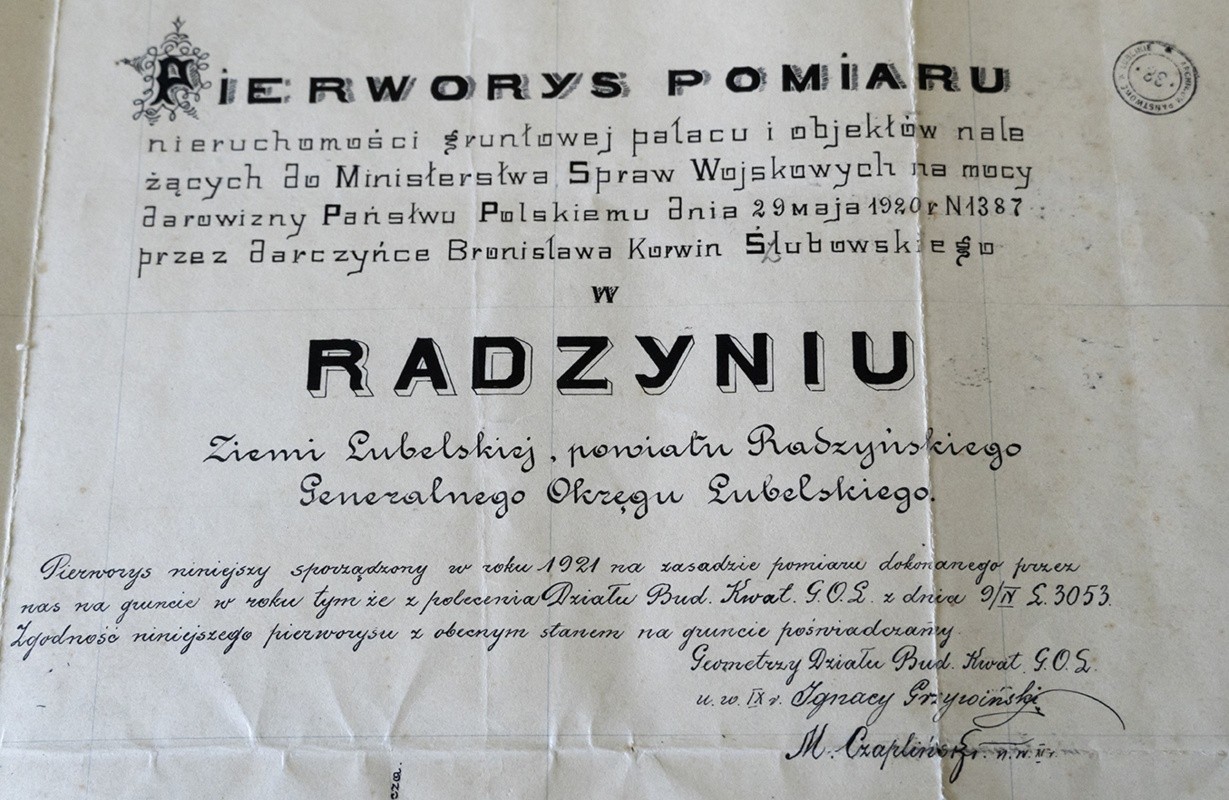 PIERWORYS POMIARU
nieruchomości gruntowej pałacu i objektów nale
żących do Ministerstwa Spraw Wojskowych na mocy
darowizny Państwu Polskiemu dnia 29 maja 1920 r N1387
przez darczyńce Bronisława Korwin Szlubowskiego
w
RADZYNIU
Ziemi Lubelskiej, powiatu Radzyńskiego
Generalnego Okręgu Lubelskiego.
Pierworys niniejszy sporządzony w roku 1921 na zasadzie pomiaru dokonanego przez
nas na gruncie w roku tym że z polecenia Działu Bud. Kwat. G.O.L. z dnia 9/IV L. 3053.
Zgodność niniejszego pierworysu z obecnym stanem na gruncie poświadczamy.
Geometrzy Działu Bud. Kwat. G.O.L.
u. w. IX r. Ignacy Grzywiński
M. Czapliński
38